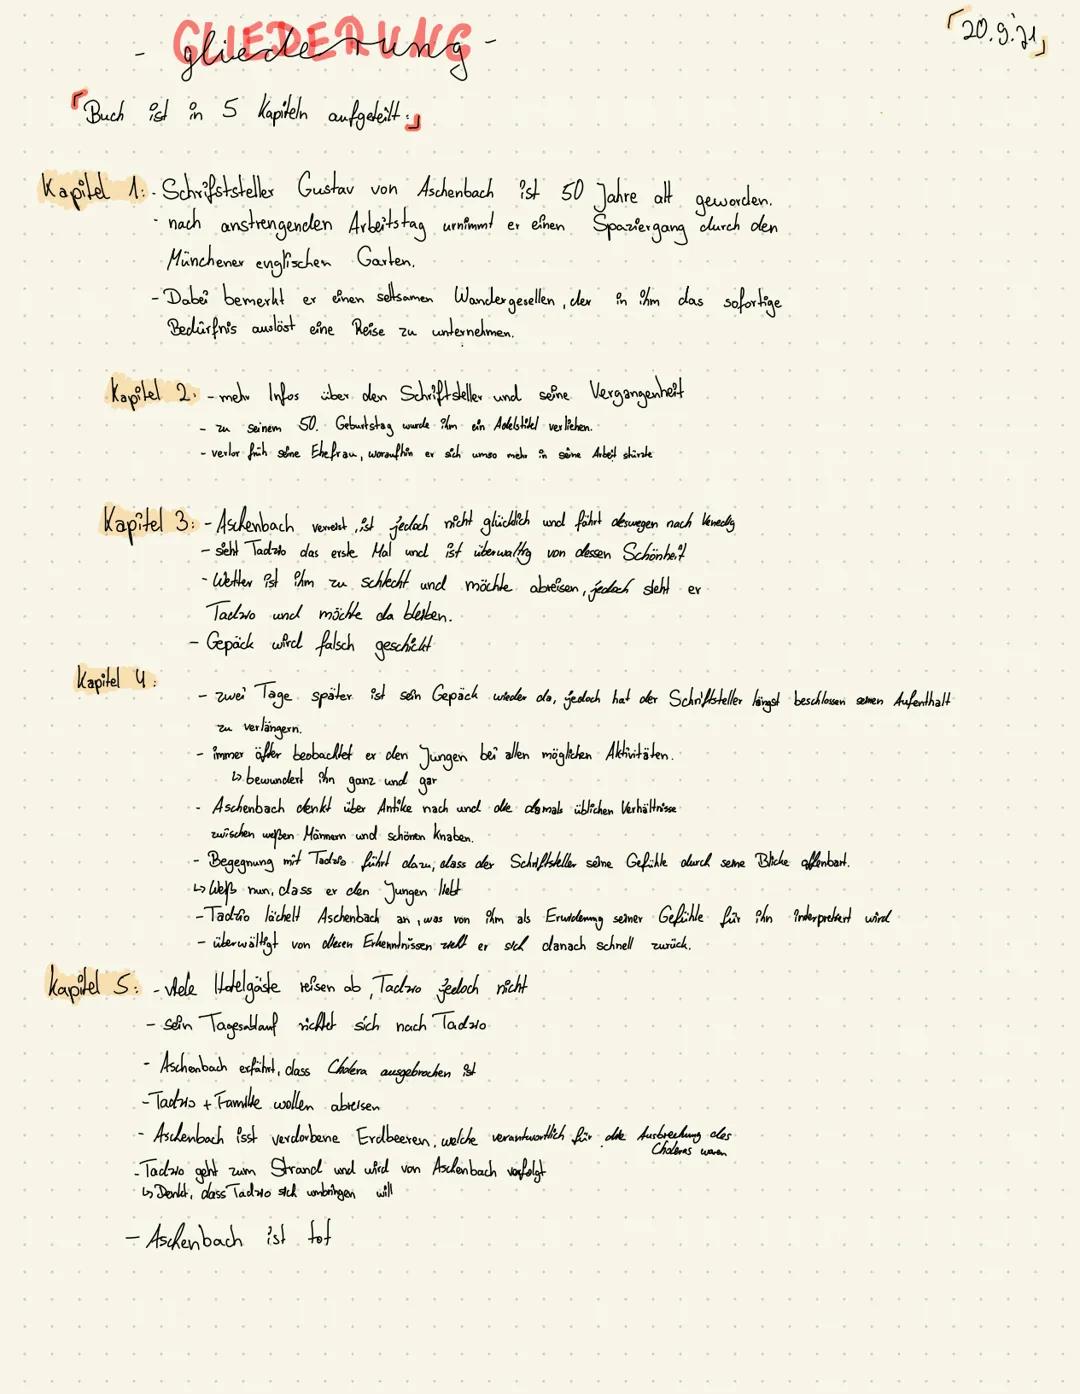 GLIEDERUNG
- gliederung -
20.9.21
Buch ist in 5 Kapiteln aufgeteilt:
Kapitel 1: - Schrifststeller Gustav von Aschenbach ist 50 Jahre alt geworden.
- nach anstrengenden Arbeitstag urnimmt er einen Spaziergang durch den
Münchener englischen Garten.
- Dabei bemerkt er einen seltsamen Wandergesellen, der in ihm das sofortige
Bedürfnis auslöst eine Reise zu unternehmen.
Kapitel 2: - mehr Infos über den Schriftsteller und seine Vergangenheit
- zu seinem 50. Geburtstag wurde ihm ein Adelstitel verliehen.
- verlor früh seine Ehefrau, woraufhin er sich umso mehr in seine Arbeit stürzte
Kapitel 3: - Aschenbach verreist, ist jedoch nicht glücklich und fährt deswegen nach Venedig
- sieht Tadzio das erste Mal und ist überwältig von dessen Schönheit
- Wetter ist ihm zu schlecht und möchte abreisen, jedoch sieht er
Tadzio und möchte da bleiben.
- Gepäck wird falsch geschickt
Kapitel 4:
- zwei Tage später ist sein Gepäck wieder da, jedoch hat der Schriftsteller längst beschlossen seinen Aufenthalt
zu verlängern.
- immer öfter beobachtet er den Jungen bei allen möglichen Aktivitäten.
↳ bewundert ihn ganz und gar
- Aschenbach denkt über Antike nach und die damals üblichen Verhältnisse
zwischen weißen Männern und schönen Knaben.
- Begegnung mit Tadzio führt dazu, dass der Schriftsteller seine Gefühle durch seine Blicke offenbart.
↳ Weiß nun, dass er den Jungen liebt
- Tadzio lächelt Aschenbach an, was von ihm als Erwiderung seiner Gefühle für ihn interpretiert wird
- überwältigt von diesen Erkenntnissen zieht er sich danach schnell zurück.
Kapitel 5: - viele Hotelgäste reisen ab, Tadzio jedoch nicht
- sein Tagesablauf richtet sich nach Tadzio
- Aschenbach erfährt, dass Cholera ausgebrochen ist
- Tadzio + Familie wollen abreisen
- Aschenbach isst verdorbene Erdbeeren, welche verantwortlich für die Ausbrechung des
Choleras waren
- Tadzio geht zum Strand und wird von Aschenbach verfolgt
↳ Denkt, dass Tadzio sich umbringen will
- Aschenbach ist tot